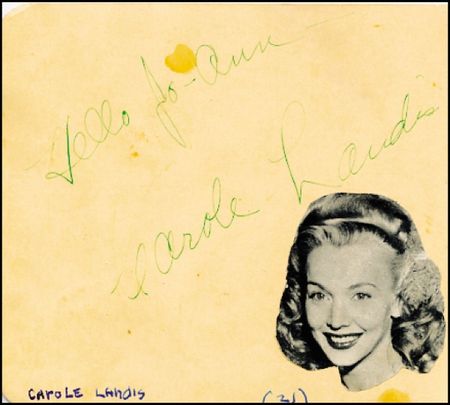 Hello Jo-Ann
Carole Landis
CAROLE LANDIS
(21)